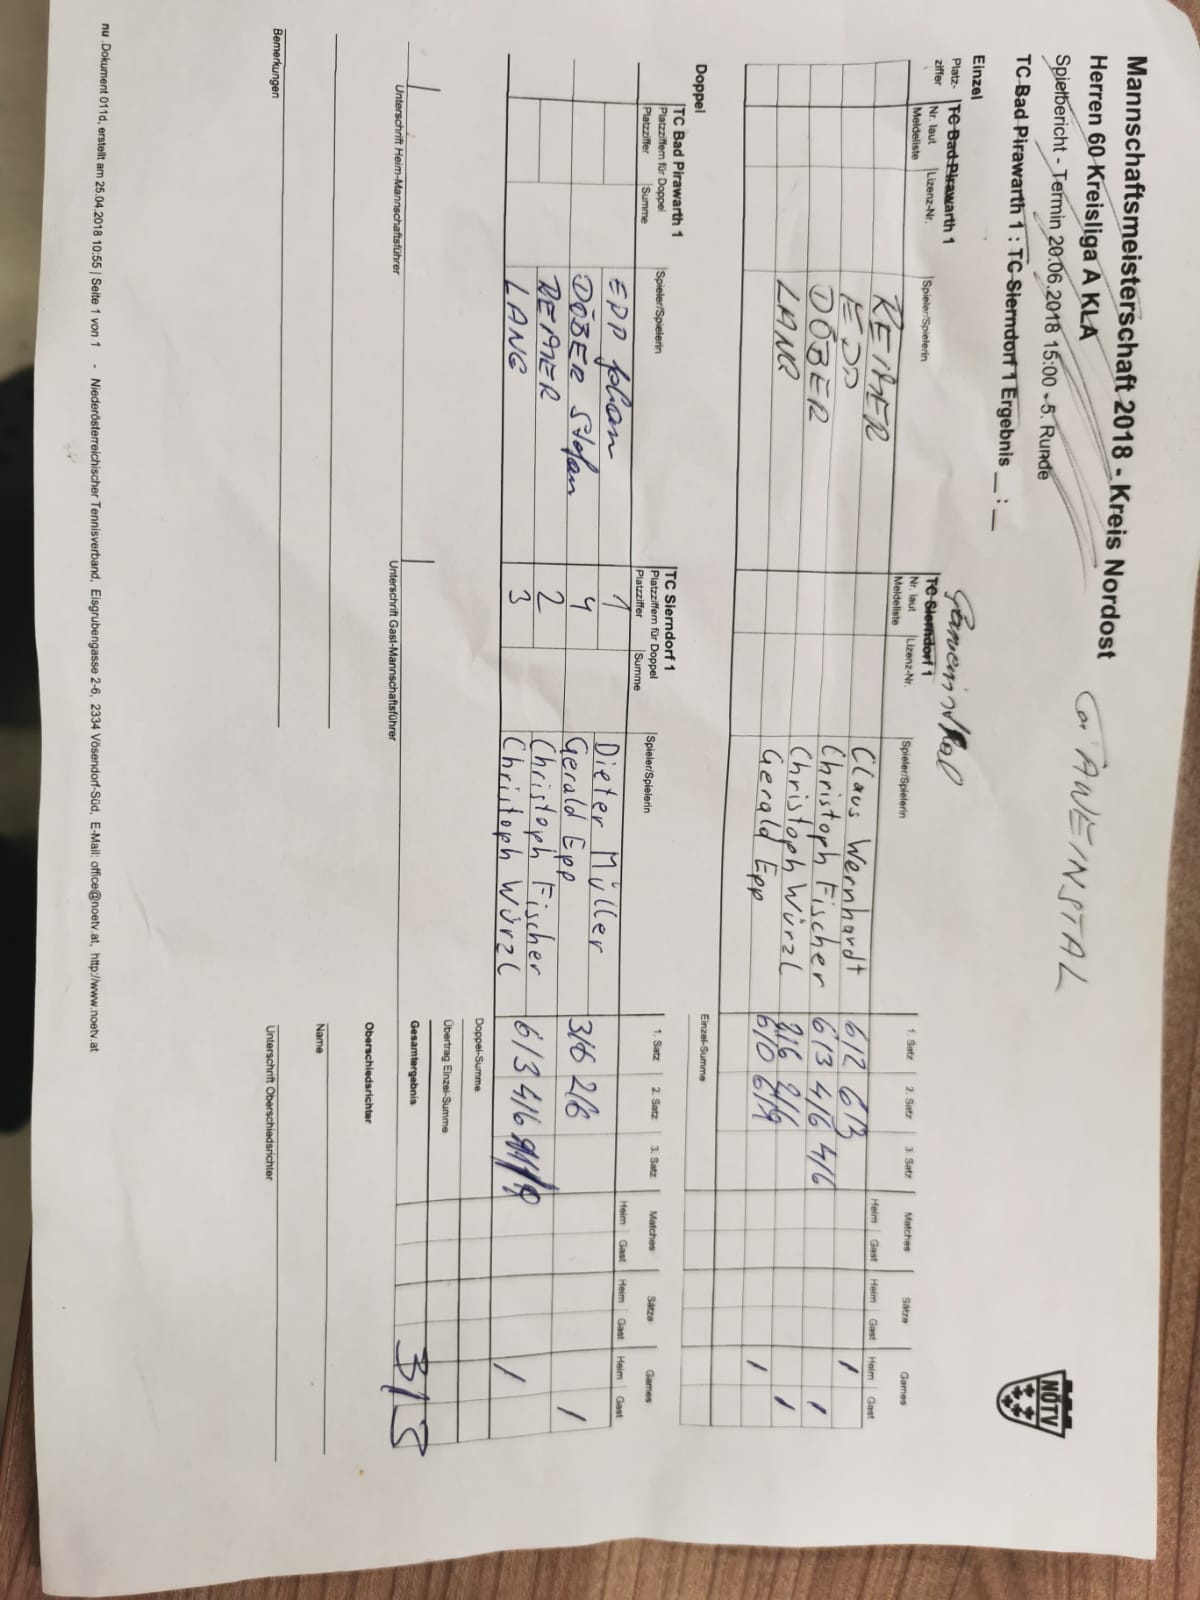 Mannschaftsmeisterschaft 2018 - Kreis Nordost
Herren 60 Kreisliga A KLA
Spielbericht - Termin 20.06.2018 15:00 - 5. Runde
TC Bad Pirawarth 1 : TC Sierndorf 1 Ergebnis _ : _
NÖTV
Einzel
TC Bad Pirawarth 1 TC Sierndorf 1
Platz-ziffer Nr. laut Meldeliste Lizenz-Nr. Spieler/Spielerin Nr. laut Meldeliste Lizenz-Nr. Spieler/Spielerin 1. Satz 2. Satz 3. Satz Matches Sätze Games
Heim Gast Heim Gast Heim Gast
REIMER Claus Wernhardt 6/2 6/3 1
EDD Christoph Fischer 6/3 4/6 4/6 1
DÖBER Christoph Würzl 2/6 2/6 1
LANG Gerald Epp 6/0 6/ 1
Einzel-Summe
Doppel
TC Bad Pirawarth 1 TC Sierndorf 1
Platzziffern für Doppel Platzziffern für Doppel
Platzziffer Summe Spieler/Spielerin Platzziffer Summe Spieler/Spielerin 1. Satz 2. Satz 3. Satz Matches Sätze Games
Heim Gast Heim Gast Heim Gast
EDD Johann 1 Dieter Müller
DÖBER Stefan 4 Gerald Epp 3/6 2/6 1
REIMER 2 Christoph Fischer
LANG 3 Christoph Würzl 6/3 4/6 1
Doppel-Summe
Übertrag Einzel-Summe
Gesamtergebnis 3/3
Unterschrift Heim-Mannschaftsführer Unterschrift Gast-Mannschaftsführer
Oberschiedsrichter
Name
Bemerkungen Unterschrift Oberschiedsrichter
nu .Dokument 011d, erstellt am 25.04.2018 10:55 | Seite 1 von 1 - Niederösterreichischer Tennisverband, Eisgrubengasse 2-6, 2334 Vösendorf-Süd, E-Mail: office@noetv.at, http://www.noetv.at